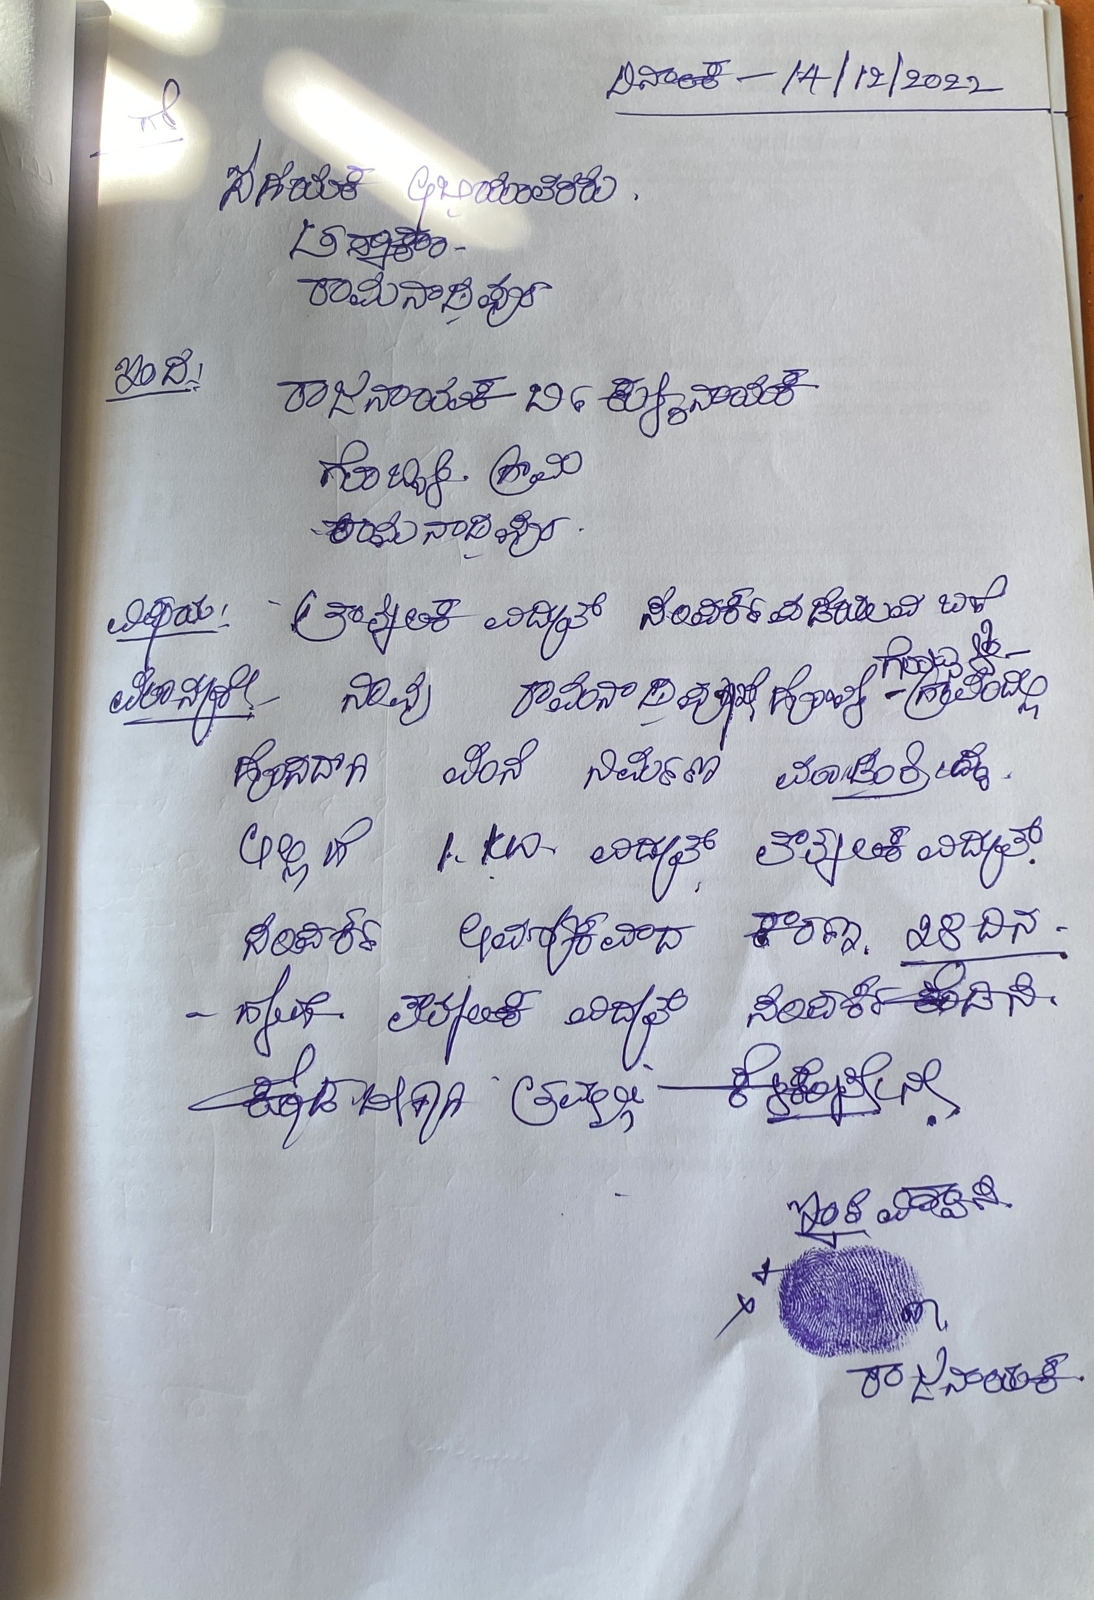 ದಿನಾಂಕ - 14/12/2022
ಗೆ
ಸಹಾಯಕ ಅಭಿಯಂತರರು.
ರಾಮನಾಥಪುರ
ಇಂದ:
ರಾಜನಾಯಕ ಬಿನ್ ಕೃಷ್ಣನಾಯಕ
ಗ್ರಾಮ
ರಾಮನಾಥಪುರ.
ವಿಷಯ: - ತಾತ್ಕಾಲಿಕ ವಿದ್ಯುತ್ ಸಂಪರ್ಕ ಪಡೆಯುವ ಬಗ್ಗೆ
ಮಾನ್ಯರೇ! ನಾವು ರಾಮನಾಥಪುರ ಗ್ರಾಮದಲ್ಲಿ
ಹೊಸದಾಗಿ ಮನೆ ನಿರ್ಮಾಣ
ಅಲ್ಲಿಗೆ 1. KW ವಿದ್ಯುತ್ ತಾತ್ಕಾಲಿಕ ವಿದ್ಯುತ್
ಸಂಪರ್ಕ ಅವಶ್ಯಕವಾದ ಕಾರಣ. 28 ದಿನ -
ತಾತ್ಕಾಲಿಕ ವಿದ್ಯುತ್ ಸಂಪರ್ಕ
ತಮ್ಮಲ್ಲಿ ಕೇಳಿಕೊಳ್ಳುತ್ತೇನೆ.
ಇಂತಿ
ರಾಜನಾಯಕ.